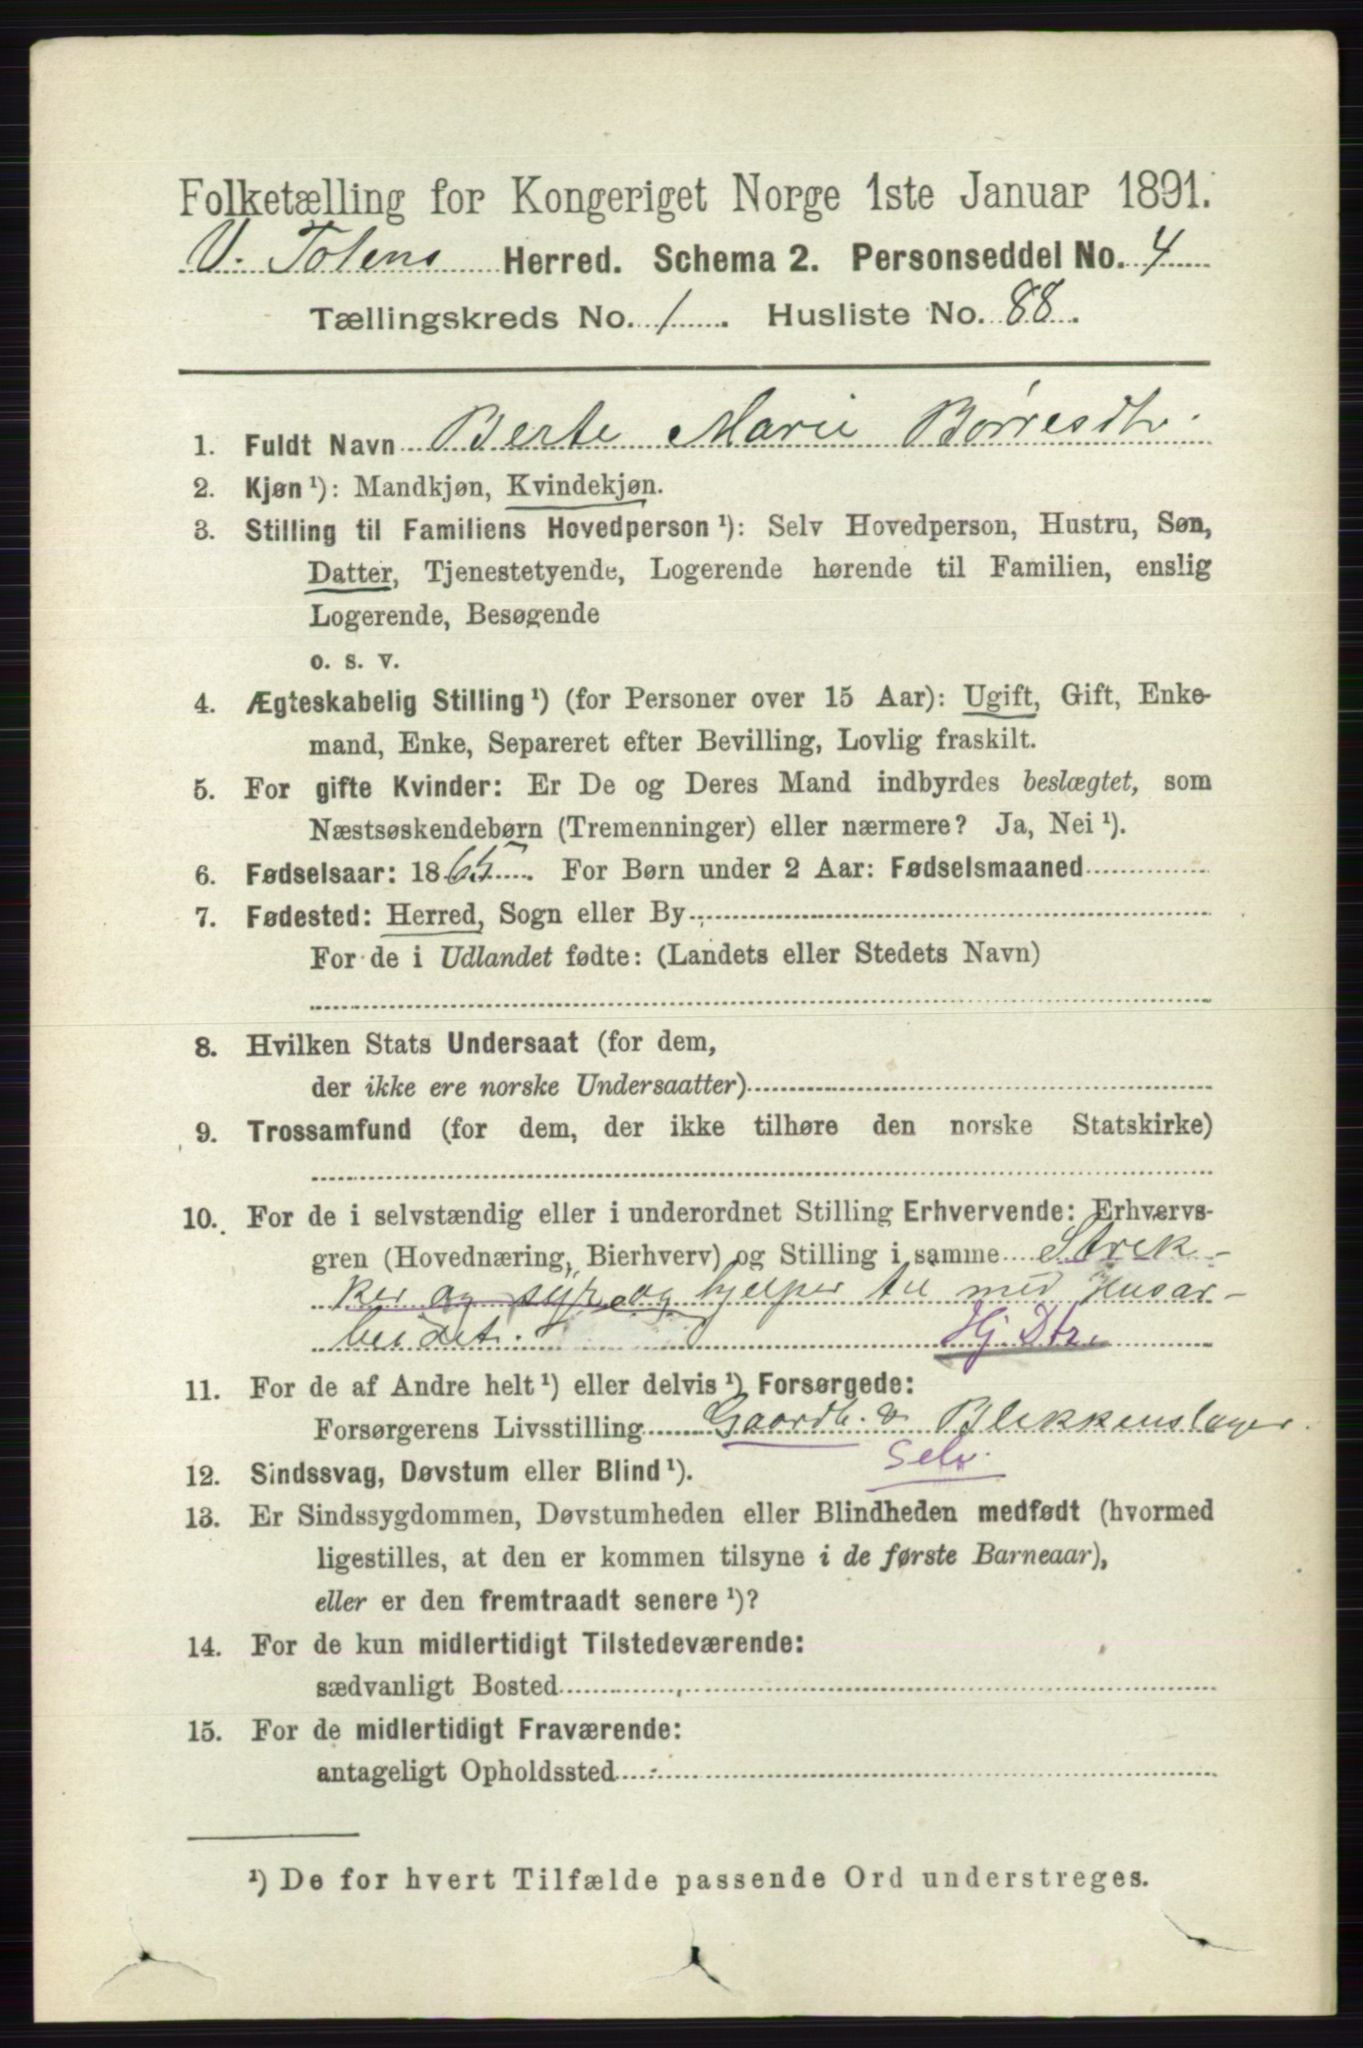 Folketælling for Kongeriget Norge 1ste Januar 1891.
V. Totens Herred. Schema 2. Personseddel No. 4
Tællingskreds No. 1. Husliste No. 88.
1. Fuldt Navn Berte Marie Børresdtr.
2. Kjøn ¹): Mandkjøn, Kvindekjøn.
3. Stilling til Familiens Hovedperson ¹): Selv Hovedperson, Hustru, Søn,
Datter, Tjenestetyende, Logerende hørende til Familien, enslig
Logerende, Besøgende
o. s. v.
4. Ægteskabelig Stilling ¹) (for Personer over 15 Aar): Ugift, Gift, Enke-
mand, Enke, Separeret efter Bevilling, Lovlig fraskilt.
5. For gifte Kvinder: Er De og Deres Mand indbyrdes beslægtet, som
Næstsøskendebørn (Tremenninger) eller nærmere? Ja, Nei ¹).
6. Fødselsaar: 1865. For Børn under 2 Aar: Fødselsmaaned
7. Fødested: Herred, Sogn eller By
For de i Udlandet fødte: (Landets eller Stedets Navn)
8. Hvilken Stats Undersaat (for dem,
der ikke ere norske Undersaatter)
9. Trossamfund (for dem, der ikke tilhøre den norske Statskirke)
10. For de i selvstændig eller i underordnet Stilling Erhvervende: Erhvervs-
gren (Hovednæring, Bierhverv) og Stilling i samme Strek-
ker og syr og hjelper til med Husar-
beidet. Hj. Dtr.
11. For de af Andre helt ¹) eller delvis ¹) Forsørgede:
Forsørgerens Livsstilling Gaardb. & Blekkenslager.
Selv.
12. Sindssvag, Døvstum eller Blind ¹).
13. Er Sindssygdommen, Døvstumheden eller Blindheden medfødt (hvormed
ligestilles, at den er kommen tilsyne i de første Barneaar),
eller er den fremtraadt senere ¹)?
14. For de kun midlertidigt Tilstedeværende:
sædvanligt Bosted
15. For de midlertidigt Fraværende:
antageligt Opholdssted
¹) De for hvert Tilfælde passende Ord understreges.